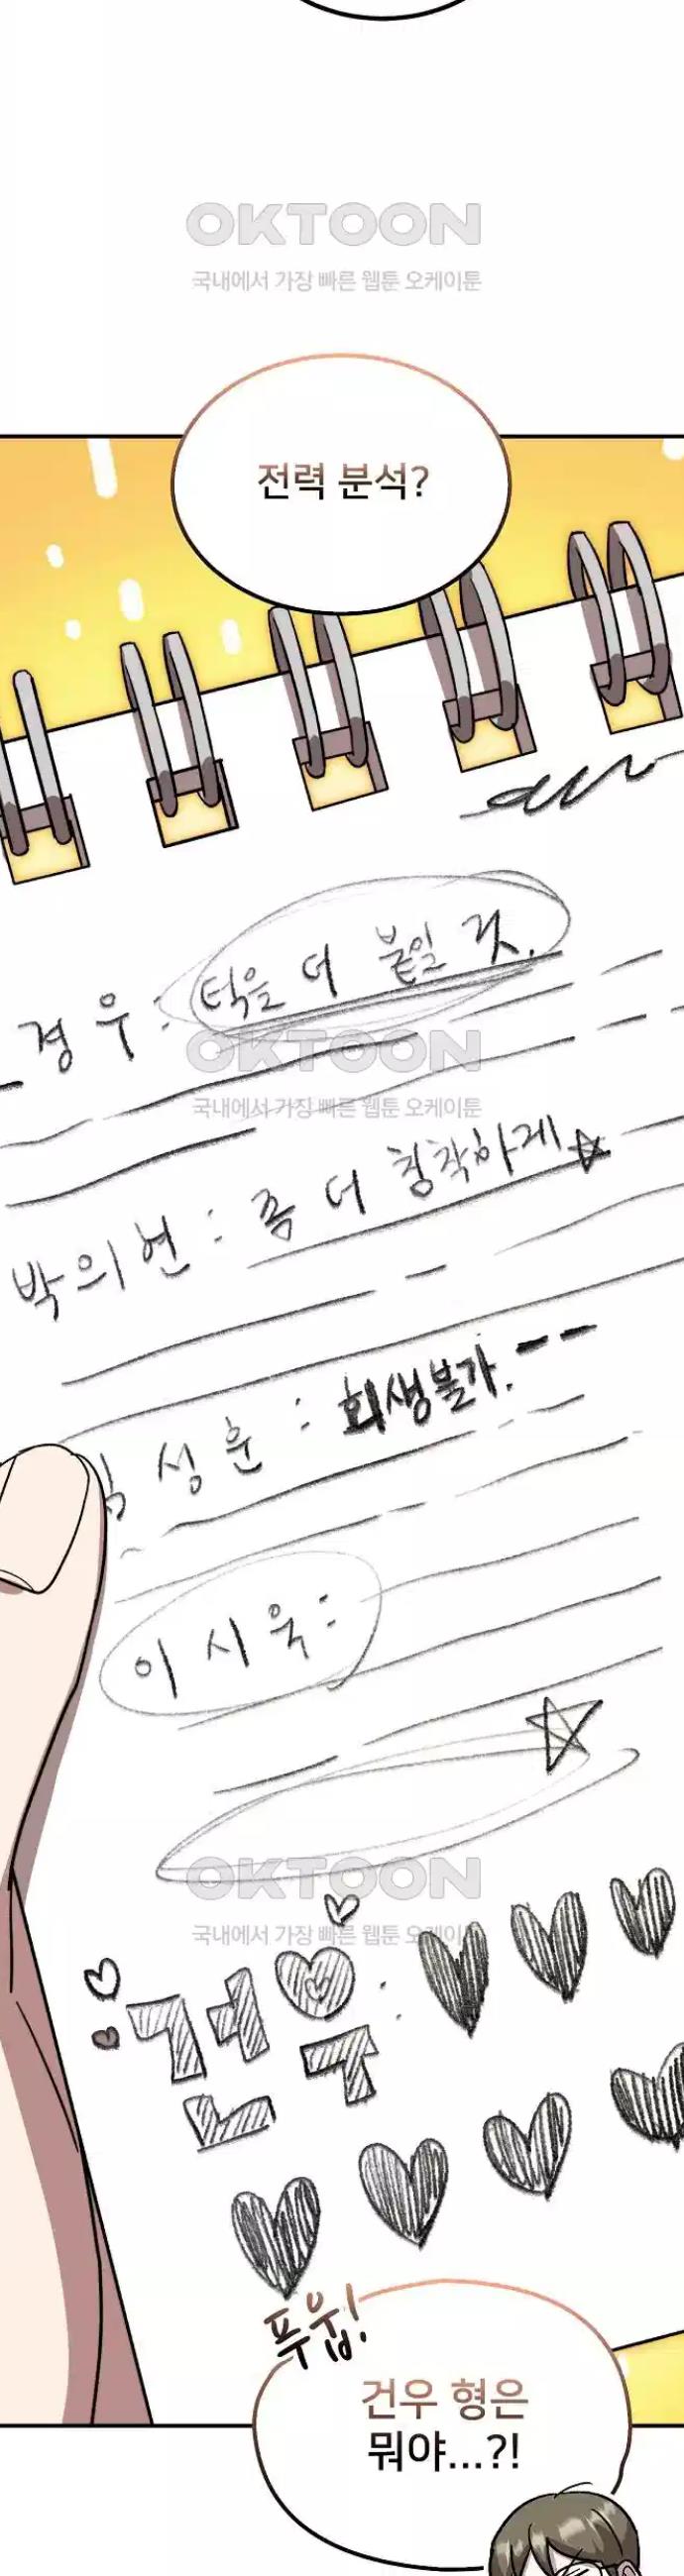 OKTOON
국내에서 가장 빠른 웹툰 오케이툰
전력 분석?
경우: 턱을 더 붙일 것.
OKTOON
국내에서 가장 빠른 웹툰 오케이툰
박의현: 좀 더 침착하게
성훈: 회생불가.
이시욱:
OKTOON
국내에서 가장 빠른 웹툰 오케이툰
건우:
푸웁!
건우 형은
뭐야...?!